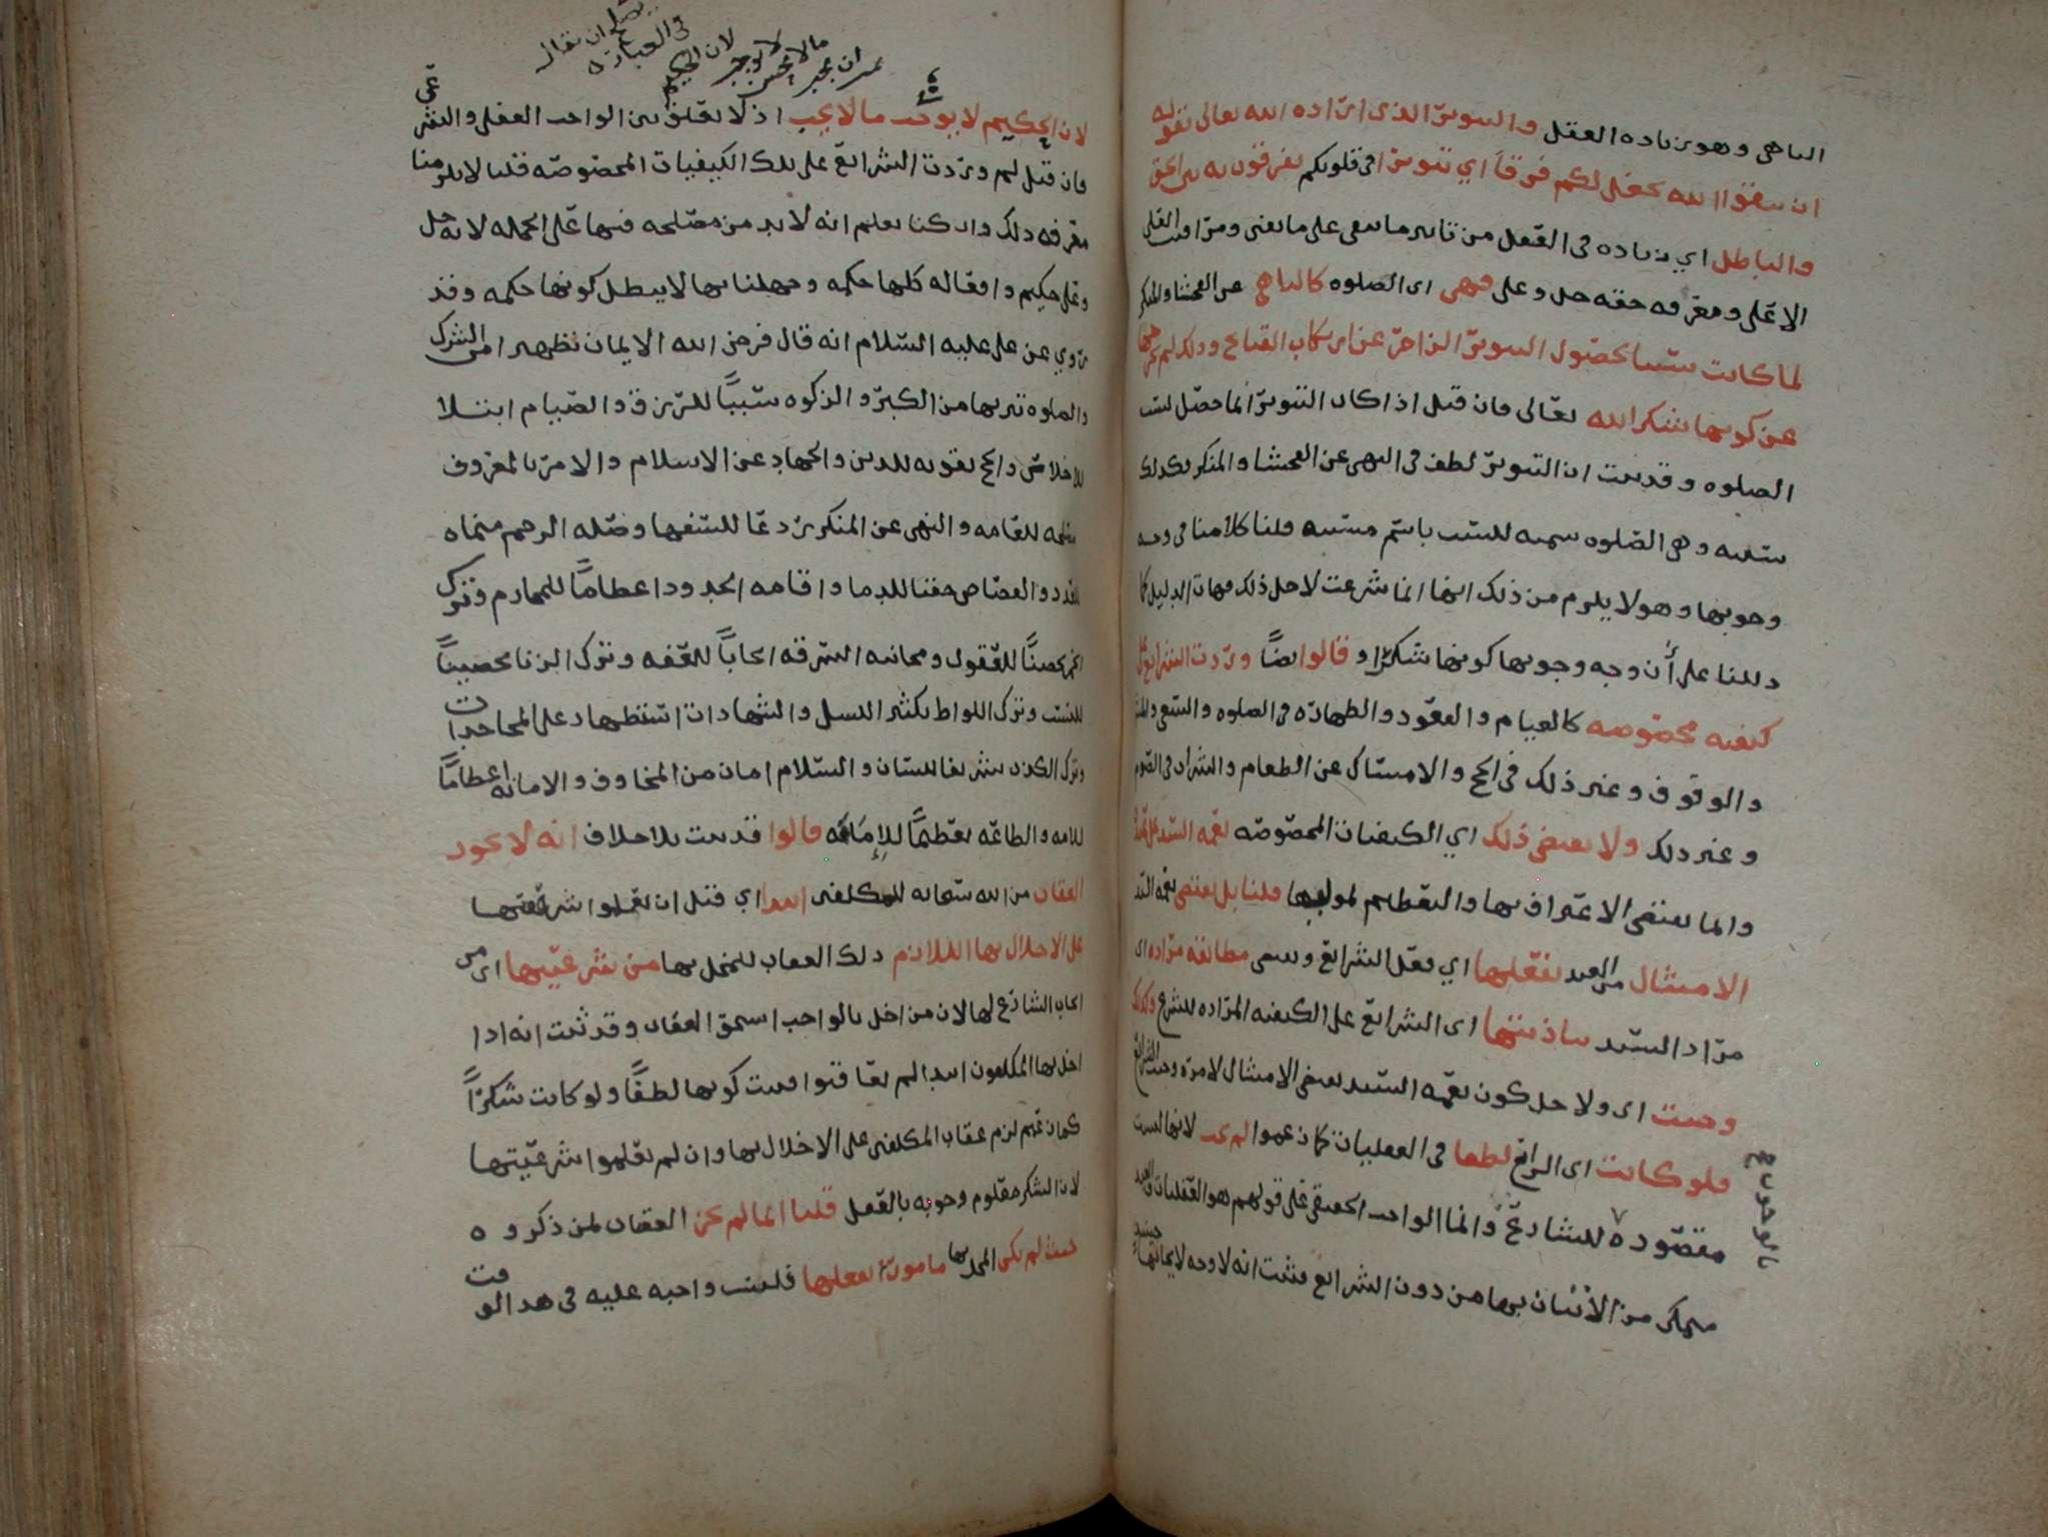 الناهي وهو زياده العقل والتنوير الذي اراده الله تعالى بقوله
ان تتقوا الله يجعل لكم فرقاناً اي تنويرا في قلوبكم تفرقون به بين الحق
والباطل اي زياده في العقل من تاثير ما يبقى على ما يفنى ومراقبه العلي
الاعلى ومعرفه حقه جل وعلى فهي اى الصلوه كالناهي عن الفحشا والمنكر
لما كانت سببا لحصول التنوير الزاجر عن ارتكاب القبائح وذلك لم يخرجها
عن كونها شكرا لله تعالى فان قيل اذا كان التنوير انما حصل بسبب
الصلوه وقد ثبت ان التنوير لطف في النهي عن الفحشا والمنكر فكذلك
سببه وهي الصلوه تسميه للسبب باسم مسببه قلنا كلامنا في وجه
وجوبها وهو لا يلزم من ذلك انها انما شرعت لاجل ذلك فهات الدليل كما
دللنا على أن وجه وجوبها كونها شكراً وقالوا ايضاً وردت الشرايع على
كيفيه مخصوصه كالقيام والقعود والطهاره في الصلوه والسعي
والوقوف وغير ذلك في الحج والامساك عن الطعام والشراب في الصوم
وغير ذلك ولا يقتضي ذلك اي الكيفيات المخصوصه نعمه السيد على عبده
وانما يقتضي الاعتراف بها والتعظيم لموليها قلنا بل يقتضي نعمة السيد
الامتثال من العبد بفعلها اي فعل الشرايع ويسمى مطابقه مراده اى
مراد السيد بتاديتها اى الشرايع على الكيفيه المراده للشرع ولذلك
وجبت اى ولاجل كون نعمه السيد يقتضي الامتثال لامره وجبت الشرايع
فلو كانت اى الشرايع لطفا في العقليات كما زعموا لم تجب لانها ليست
مقصوده للشارع وانما الواجب الحقيقي على قولهم هو العقليات والعبد
متمكن من الأتيان بها من دون الشرايع فثبت انه لا وجه لايجابها حينئذ
لان الحكيم لا يوجب ما لا يجب اذ لا تعلق بين الواجب العقلي والشرعي
فان قيل لم وردت الشرايع على تلك الكيفيات المخصوصه قلنا لا يلزمنا
معرفه ذلك وان كنا نعلم انه لا بد من مصلحه فيها على الجمله لانه جل
وعلى حكيم وافعاله كلها حكمه وجهلنا بها لا يبطل كونها حكمه وقد
روي عن علي عليه السلام انه قال فرض الله الايمان تطهيرا من الشرك
والصلوه تنزيها من الكبر والزكوه سبباً للرزق والصيام ابتلا
للاخلاص والحج تقويه للدين والجهاد عن الاسلام والامر بالمعروف
مصلحه للعامه والنهي عن المنكر ردعا للسفها وصله الرحم منماه
للعدد والقصاص حقنا للدما واقامه الحدود اعظاماً للمحارم وترك
الخمر تحصيناً للعقول ومجانبه السرقه ايجاباً للعفه وترك الزنا تحصيناً
للنسب وترك اللواط تكثير النسل والشهادات استظهارا على المجاحدات
وترك الكذب تشريفا للسان والسلام امان من المخاوف والامانه اعظاماً
للامه والطاعه تعظيماً للإمامه قالوا قد ثبت بلا خلاف انه لا يجوز
العقاب من الله سبحانه للمكلفين ابتدا اي قبل ان يعلموا شرعيتها
على الاخلال بها اللازم ذلك العقاب للمخل بها من شرعيتها اى من
ايجاب الشارع لها لان من اخل بالواجب استحق العقاب وقد ثبت انه اذا
اخل بها المكلفون ابتدا لم يعاقبوا فثبت كونها لطفاً ولو كانت شكراً
كما زعمتم لزم عقاب المكلفين على الاخلال بها وان لم يعلموا شرعيتها
لان الشكر معلوم وجوبه بالعقل قلنا انما لم يجز العقاب لمن ذكروه
حيث لم يكن المخل بها مامورا بفعلها فليست واجبه عليه في هذا الوقت